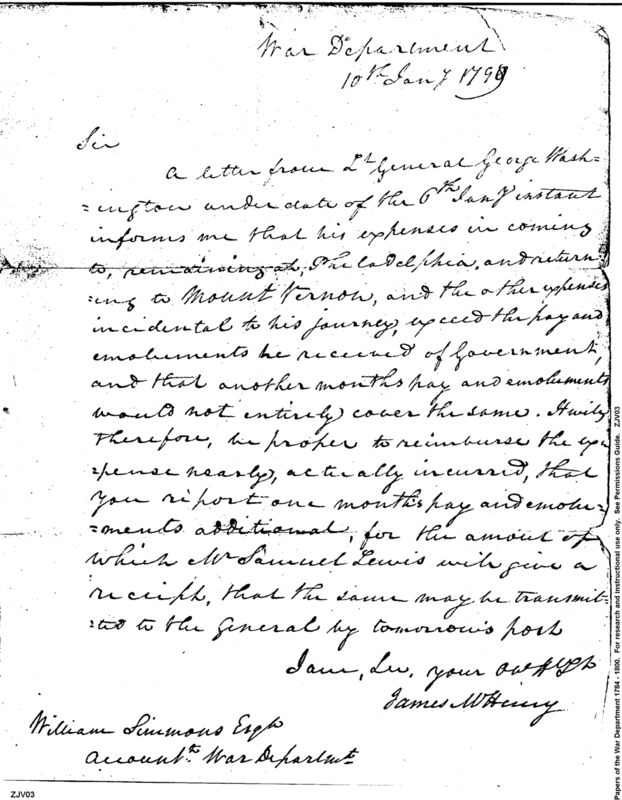 War Department
10th Jany 1799
Sir
A letter from Lt General George Wash=
=ington under date of the 6th Jany instant
informs me that his expenses in coming
to, remaining at, Philadelphia, and return
=ing to Mount Vernon, and the other expenses
incidental to his journey, exceed the pay and
emoluments he received of Government,
and that another months pay and emoluments
would not entirely cover the same. It will
therefore, be proper to reimburse the ex
=pense nearly, actually incurred, that
you report one months pay and emolu=
=ments additional, for the amount of
which Mr Samuel Lewis will give a
receipt, that the same may be transmit=
=ted to the General by tomorrow's post
I am, Sir, your
James McHenry
William Simmons Esqr
Accountt. War Departmt.
ZJV03
Papers of the War Department 1784 - 1800. For research and instructional use only. See Permissions Guide. ZJV03